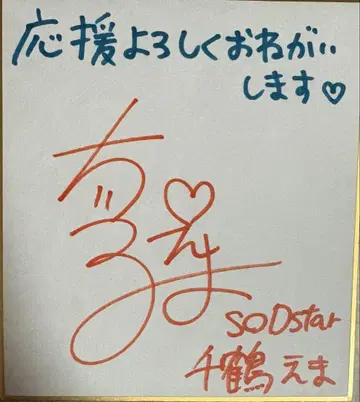 応援よろしくおねがい
します♡
ちづるえま
SODstar
千鶴えま